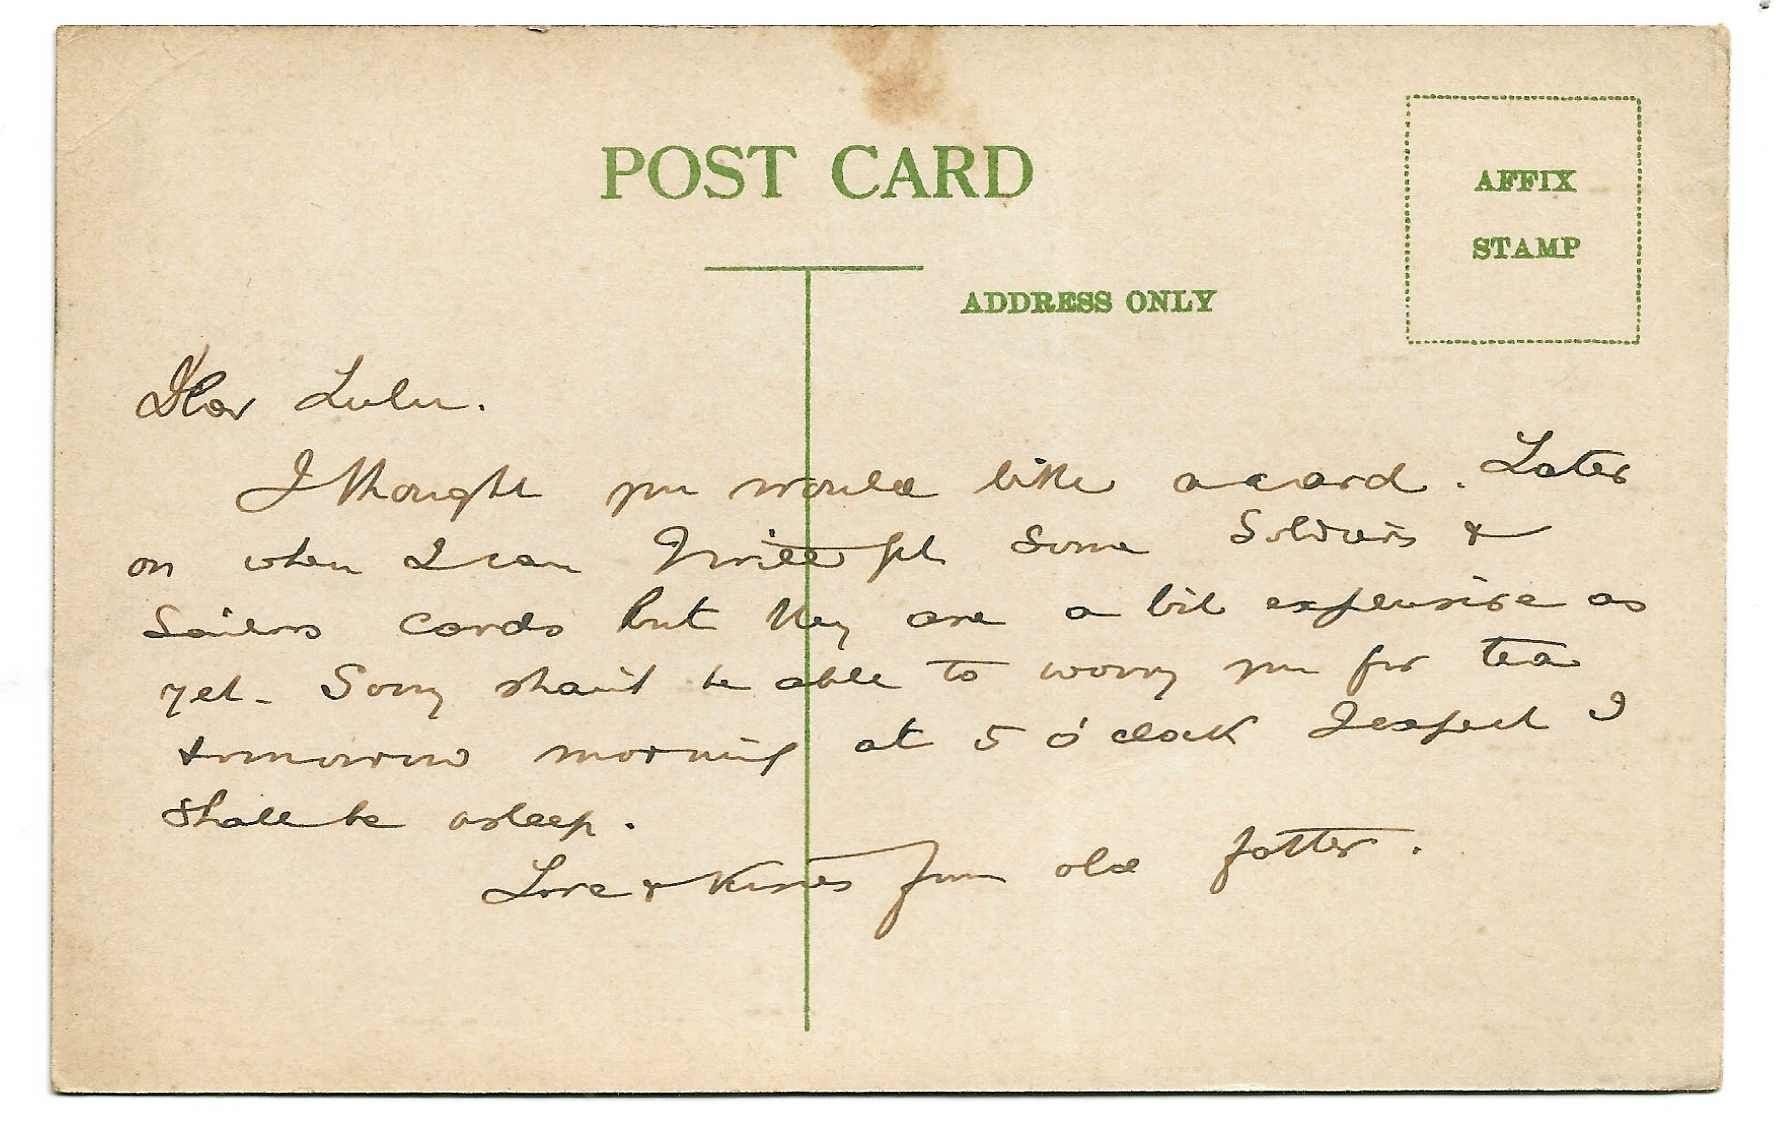 POST CARD
AFFIX
STAMP
ADDRESS ONLY
Dear Lulu.
I thought you would like a card. Later
on when I can I will get some Soldiers &
Sailors cards but they are a bit expensive as
yet. Sorry shan't be able to worry you for tea
tomorrow morning at 5 o'clock I expect I
shall be asleep.
Love & Kisses from old fatter.